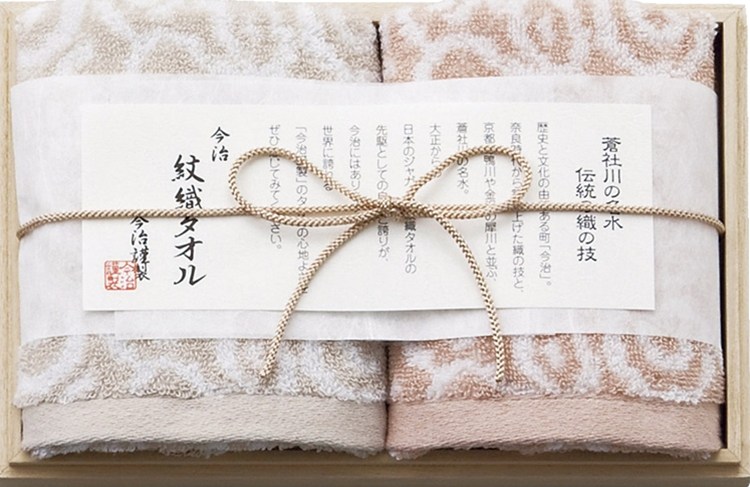 蒼社川の名水
伝統の織の技
歴史と文化の由 ある町「今治」。
奈良時 から 上げた織の技と、
京都 鴨川や金 の犀川と並ぶ、
蒼社 の名水。
大正から
日本のジャガ 織タオルの
先駆としての 誇りが、
今治にはあり
世界に誇れる
「今治 製」のタ の心地よ
ぜひ じてみて さい。
今治
紋織タオル
今治謹製